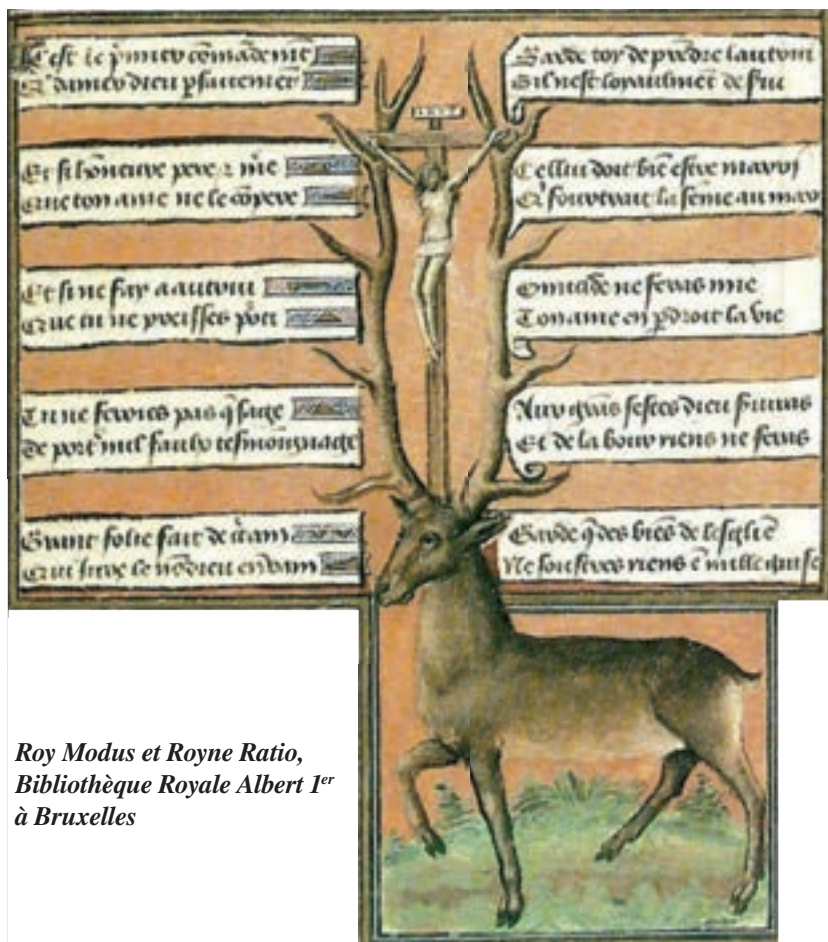 Cest le p̄mier cōmādemēt
Q̄ damer dieu p̄faitemēt
Et si hōneure pere z me
Que ton ame ne le cōpere
Et si ne fay a autrui
Que tu ne
Tu ne feroies pas q̄ sage
de port̄ nul faulx tesmoingnage
Grant folie fait
Qui jure le nō dieu en vain
INRI
Garde toy de prēdre lautrui
Sil nest loyaulmēt de
Cellui doit biē estre marri
Q̄ fourtrait la feme au mari
Omicide ne feras mie
Ton ame en p̄droit la vie
Aux grās festes dieu s̄uiras
Et de labour riens ne feras
Garde q̄ des biēs de leglise
Ne riens ē nulle guise
Roy Modus et Royne Ratio,
Bibliothèque Royale Albert 1er
à Bruxelles